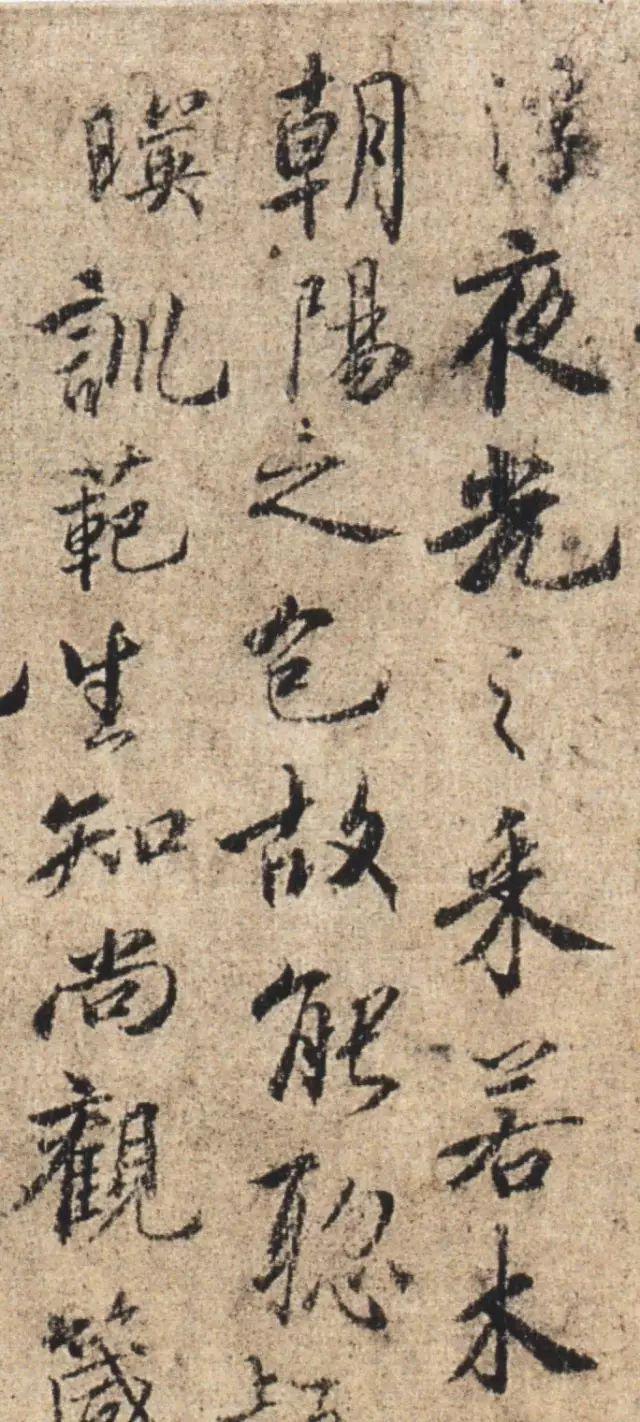 浮夜光之采若木
朝陽之色故能聰
暎訓範生知尚觀箴